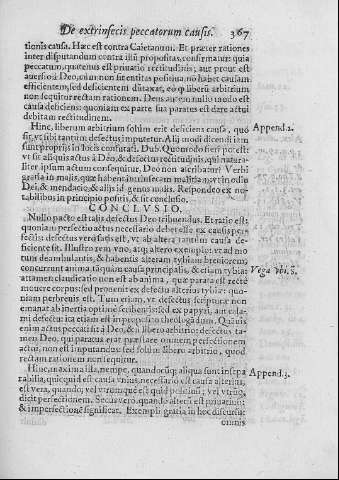 De extrinsecis peccatorum causis. 367
tionis causa. Hæc est contra Caietanum. Et præter rationes
inter disputandum contra illũ propositas, confirmatur: quia
peccatum, quatenus est priuatio rectitudinis; aut prout est
auersio à Deo, cùm non sit entitas positiua, nõ habet causam
efficientem, sed deficientem dũtaxat, eo qp liberũ arbitrium
non sequitur rectam rationem. Deus autem nullo modo est
causa deficiens: quoniam ex parte sua paratus est dare actui
debitam rectitudinem.
Hinc, liberum arbitrium solum erit deficiens causa, quo Append.2.
sit, vt sibi tantùm defectus imputetur. Alij modi dicendi iam
sunt proprijs in locis confutati. Dub. Quomodo fieri potest:
vt sit aliquis actus à Deo, & defectus rectitudinis, qui natura-
liter ipsum actum consequitur, Deo non ascribatur? Verbi
gratia in malis, quæ habent intrinsecam malitiã, vt in odio
Dei, & mendacio, & alijs id genus malis. Respondeo ex no-
tabilibus in principio positis, & sit conclusio.
CONCLVSIO.
Nullo pacto est talis defectus Deo tribuendus. Et ratio est:
quoniam perfectio actus necessariò debet esse ex causis per-
fectis: defectus verò satis est, vt ab altera tantùm causa de-
ficiente sit. Illustro rem vno, atq; altero exemplo: vt ad mo-
tum deambulantis, & habentis alteram tybiam breuiorem,
concurrunt anima, tãquam causa principalis, & etiam tybia: Vega vbi. S.
attamen claudicatio non est ab anima, quæ parata est rectè
mouere corpus: sed prouenit ex defectu alterius tybiæ: quo-
niam perbreuis est. Tum etiam, vt defectus scripturæ non
emanat ab inertia optimè scribẽtis; sed ex papyri, aut cala-
mi defectu: ita etiam est in proposito theologãdum. Quãuis
enim actus peccati sit à Deo, & à libero arbitrio: defectus ta-
men Deo, qui paratus erat præstare omnem perfectionem
actui, non est imputandus: sed solùm libero arbitrio, quod
rectam rationem non sequitur.
Hinc, maxima illa, nempe, quandocũq; aliqua sunt insepa Append.3.
rabilia, quicquid est causa vnius, necessariò est causa alterius,
est vera, quando, vel vtrumque est quid positiuũ; vel vtrũq;
dicit perfectionem. Secus verò, quando alterũ est priuatiuũ;
& imperfectionẽ significat. Exempli gratia in hoc discursu:
omnis